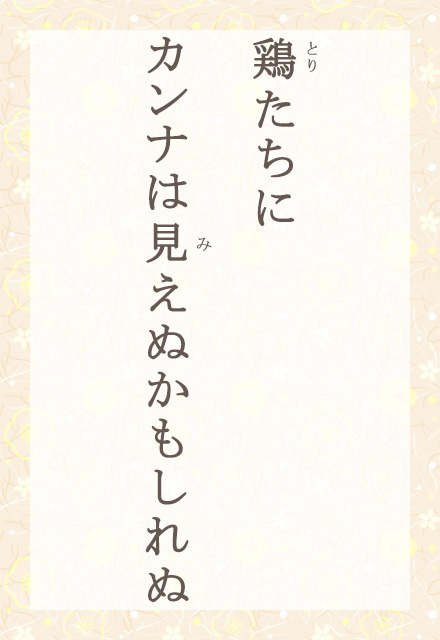 鶏たちに
とり
カンナは見えぬかもしれぬ
み